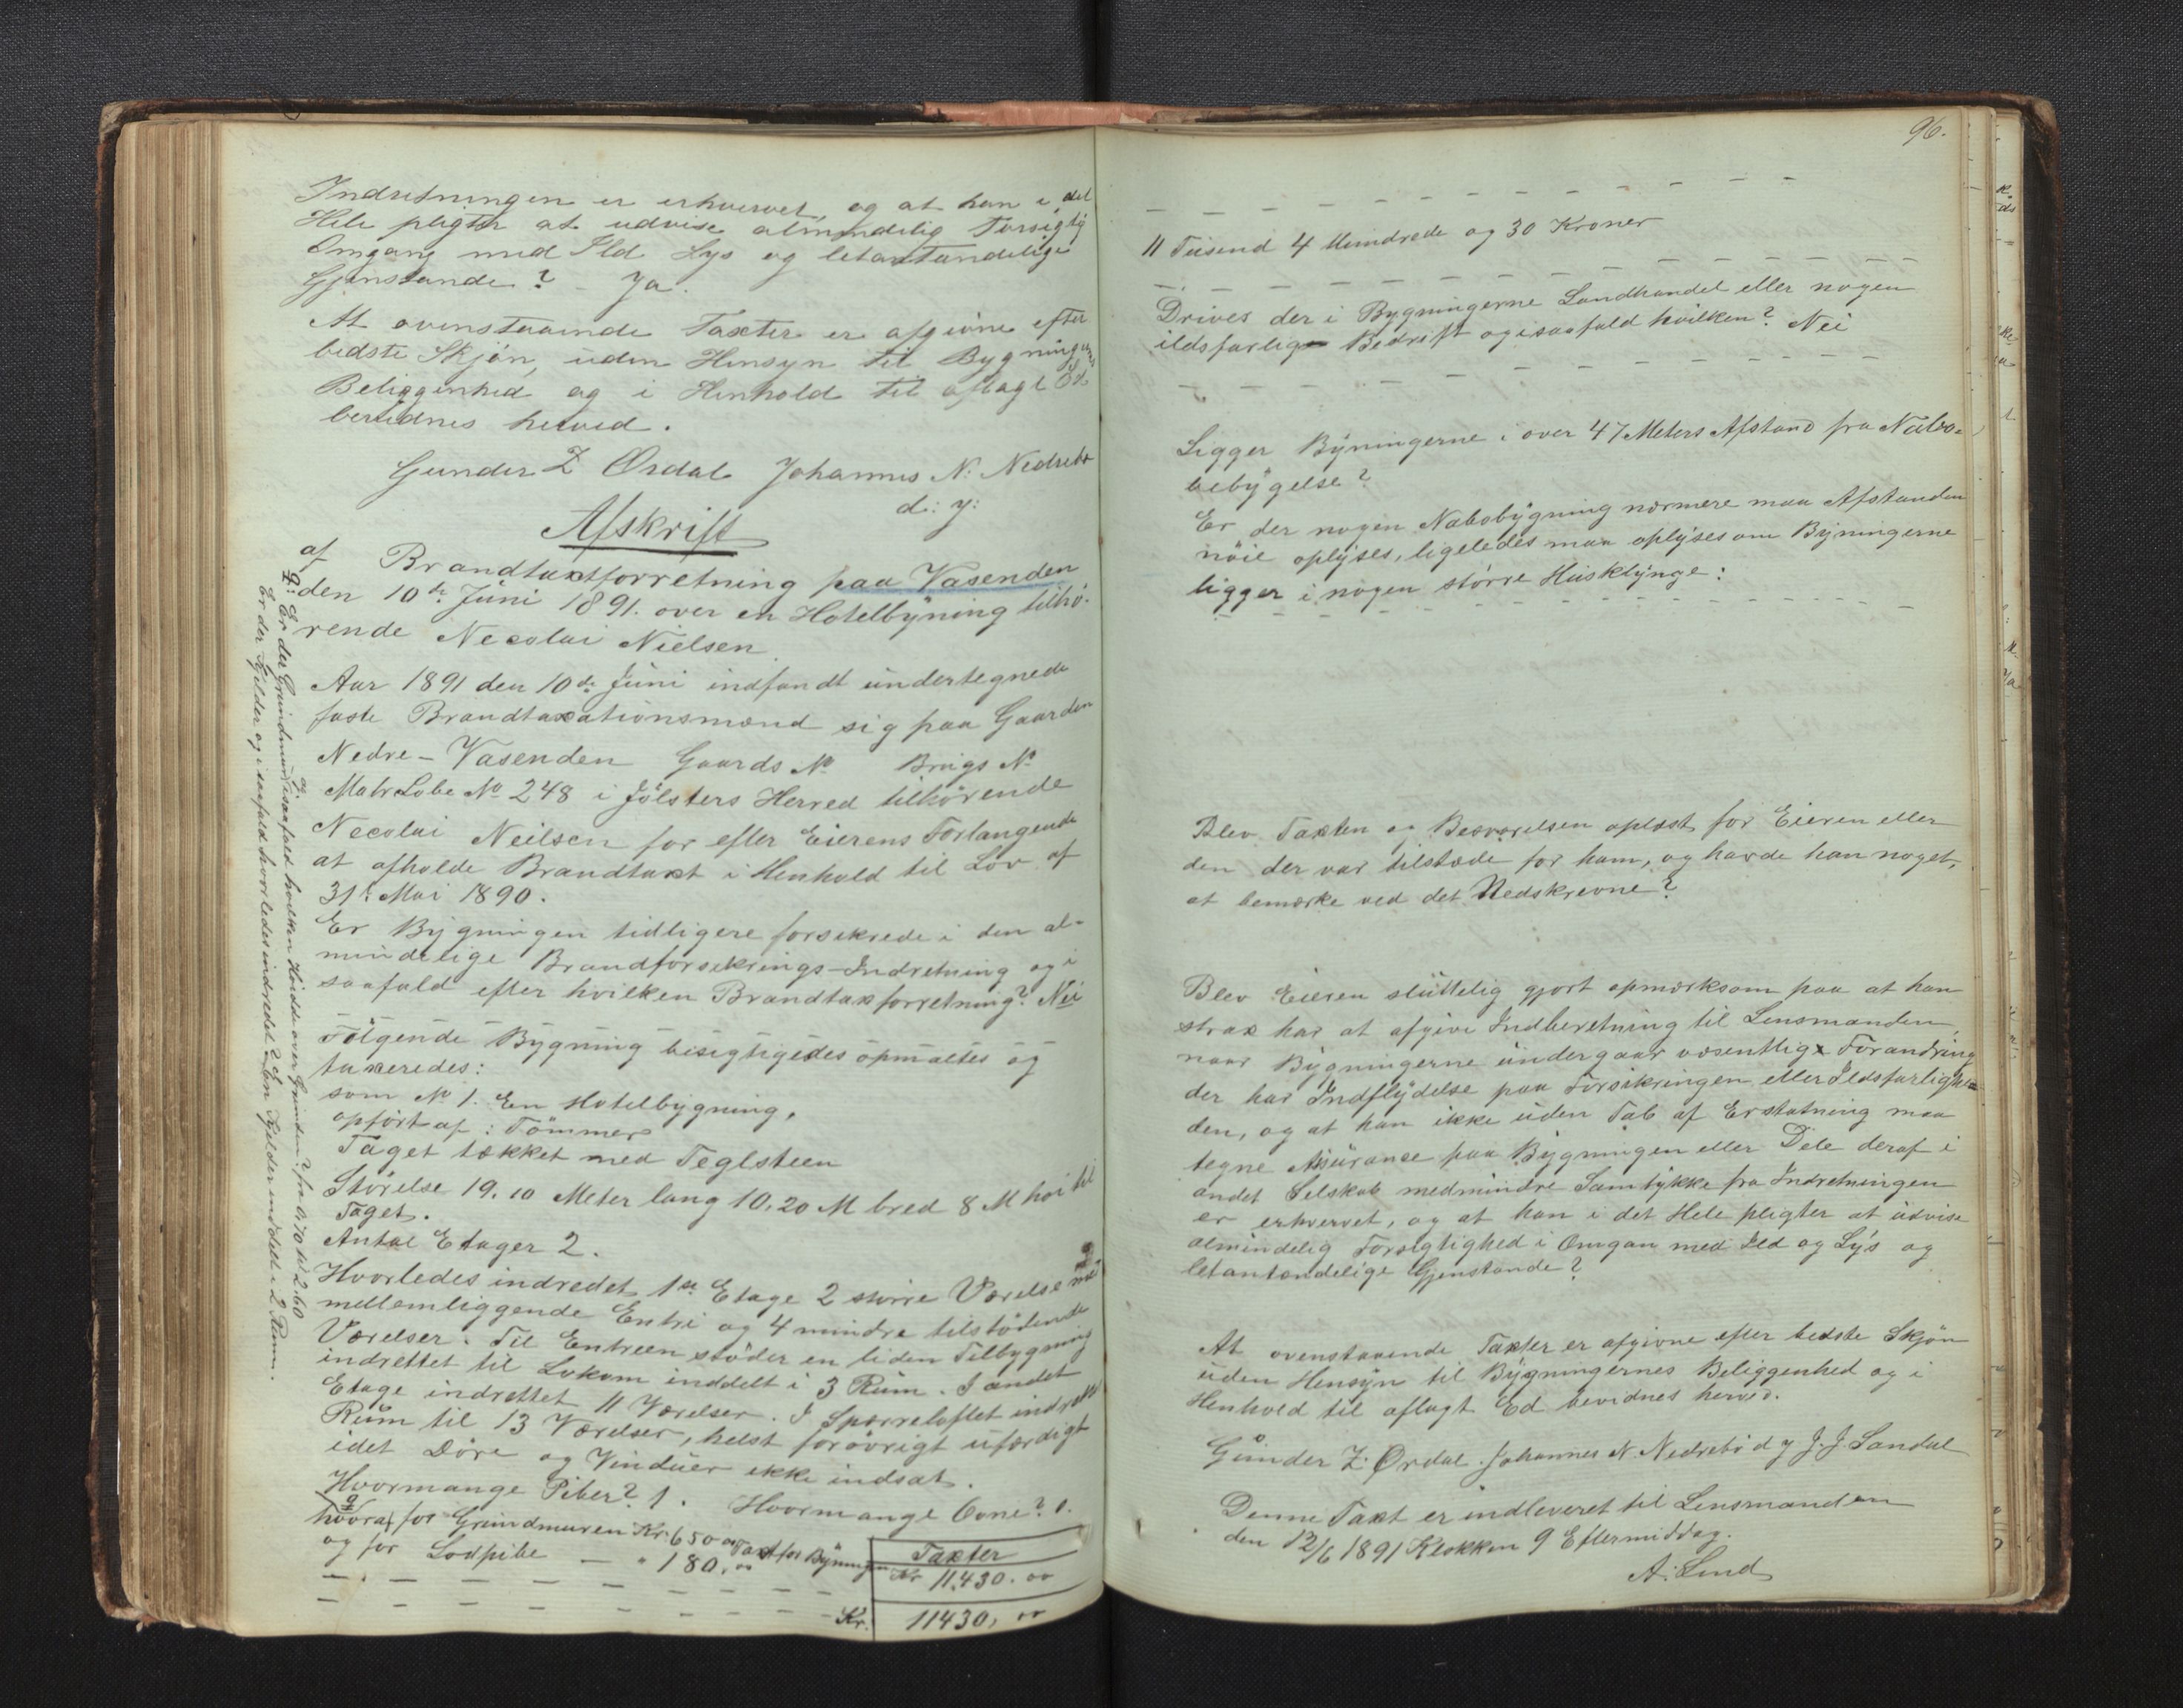 Indretningen er erhvervet, og at han i det
Hele pligter at udvise almindelig Forsigtig
Omgang med Ild Lys og letantændelige
Gjenstande? – Ja.
At ovenstaaende Taxter er afgivne efter
bedste Skjøn, uden Hensyn til Bygningens
Beliggenhed og i Henhold til aflagt Ed
bevidnes herved.
Gunder Z Ørdal Johannes N. Nedrebø
d: y:
Afskrift
af Brandtaxtforretning paa Vasenden
den 10de Juni 1891. over en Hotelbyning tilhø-
rende Necolai Nielsen.
Aar 1891 den 10de Juni indfandt undertegnede
faste Brandtaxationsmænd sig paa Gaarden
Nedre-Vasenden Gaards No Brugs No
Matr Løbe No 248 i Jølsters Herred tilhørende
Necolai Neilsen for efter Eierens Forlangende
at afholde Brandtaxt i Henhold til Lov af
31: Mai 1890.
Er Bygningen tidligere forsikrede i den al-
mindelige Brandforsikrings-Indretning og i
saafald efter hvilken Brandtaxforretning? Nei
Følgende Bygning besigtigedes opmaltes og
taxeredes:
som No 1. En Hotelbygning.
opført af: Tømmer
Taget tækket med Teglsteen
Størelse 19.10 Meter lang 10,20 M bred 8 M høi til
Taget.
Antal Etager 2.
Hvorledes indredet 1ste Etage 2 større Værelse med
mellemliggende Entri og 4 mindre tilstødende
Værelser. Til Entreen støder en liden Tilbygning
indrettet til Lokum inddelt i 3 Rum. I andet
Etage indrettet 11 Værelser. I Sperreloftet indrettet
Rum til 13 Værelser, helst forøvrigt ufærdigt
idet Døre og Vinduer ikke indsat.
Hvormange Piber? 1. Hvormange Ovne? 0.
hvoraf for Grundmuren Kr. 650 00 Taxt for Byningen
og for Lodpibe — " 180,00
Taxter
Kr 11,430.00
Kr. 11430,00
q: Er der Grundmur og isaafald hvilken Høide over Grunden? fra 0,70 til 2.60
Er der Kjelder og i saafald hvorledes indredet? En Kjelder inddelt i 2 Rum.
96.
11 Tusend 4 Hundrede og 30 Kroner
Drives der i Bygningerne Landhandel eller nogen
ildsfarlige Bedrift og isaafald hvilken? Nei
Ligger Byningerne i over 47 Meters Afstand fra Nabo=
bebygelse?
Er der nogen Nabobygning nærmere maa Afstanden
nöie oplyses, ligeledes maa oplyses om Byningerne
ligger i nogen större Husklynge:
Blev Taxten og Besvarelsen oplæst for Eieren eller
den der var tilstæde for ham, og havde han noget,
at bemærke ved det Nedskrevne?
Blev Eieren sluttelig gjort opmærksom paa at han
strax har at afgive Indberetning til Lensmanden,
naar Bygningerne undergaar væsentlige Forandring
der har Indflydelse paa Forsikringen eller Ildsfarlighe=
den, og at han ikke uden Tab af Erstatning maa
tegne Assurance paa Bygningen eller Dele deraf i
andet Selskab medmindre Samtykke fra Indretningen
er erhvervet, og at han i det Hele pligter at udvise
almindelig Forsigtighed i Omgan med Ild og Lys og
letantændelige Gjenstande?
At ovenstaaende Taxter er afgivne efter bedste Skjøn
uden Hensyn til Bygningernes Beliggenhed og i
Henhold til aflagt Ed bevidnes herved.
Gunder Z. Ørdal. Johannes N. Nedrebö d y J. J. Sandal
Denne Taxt er indleveret til Lensmanden
den 12/6 1891 Klokken 9 Eftermiddag.
A: Lund